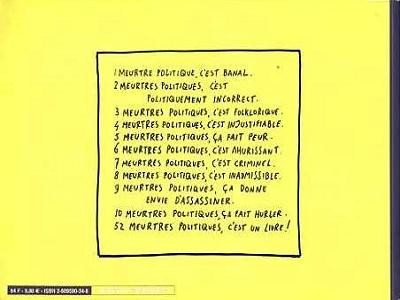 1 MEURTRE POLITIQUE, C'EST BANAL.
2 MEURTRES POLITIQUES, C'EST
POLITIQUEMENT INCORRECT.
3 MEURTRES POLITIQUES, C'EST FOLKLORIQUE.
4 MEURTRES POLITIQUES, C'EST INJUSTIFIABLE.
5 MEURTRES POLITIQUES, ÇA FAIT PEUR.
6 MEURTRES POLITIQUES, C'EST AHURISSANT.
7 MEURTRES POLITIQUES, C'EST CRIMINEL.
8 MEURTRES POLITIQUES, C'EST INADMISSIBLE.
9 MEURTRES POLITIQUES, ÇA DONNE
ENVIE D'ASSASSINER.
10 MEURTRES POLITIQUES, ÇA FAIT HURLER.
52 MEURTRES POLITIQUES, C'EST UN LIVRE!